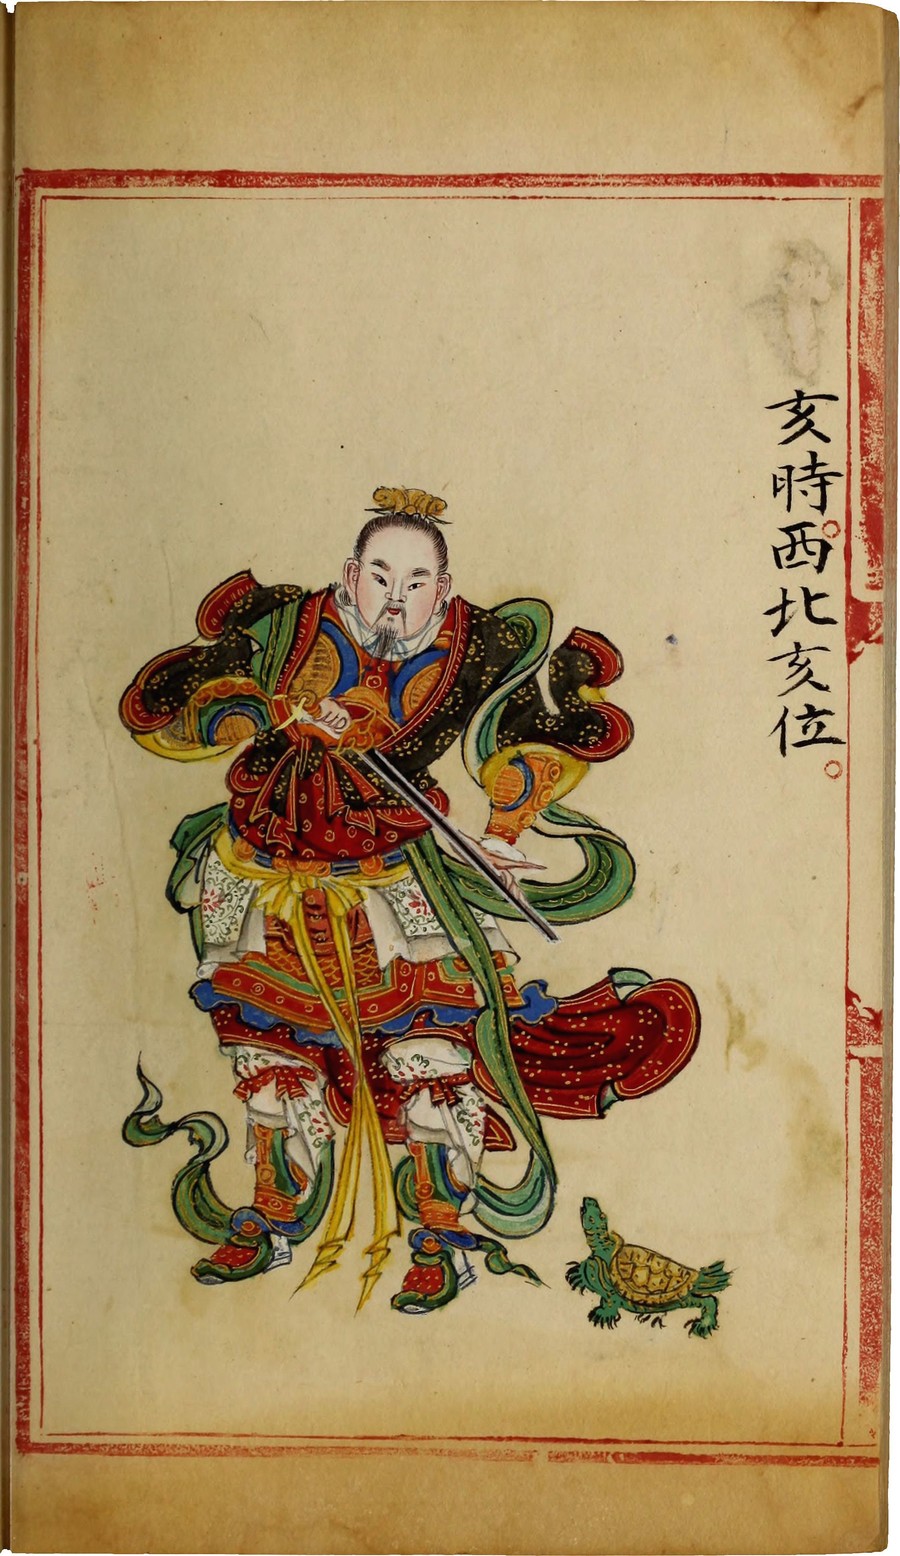 亥時。西北亥位。